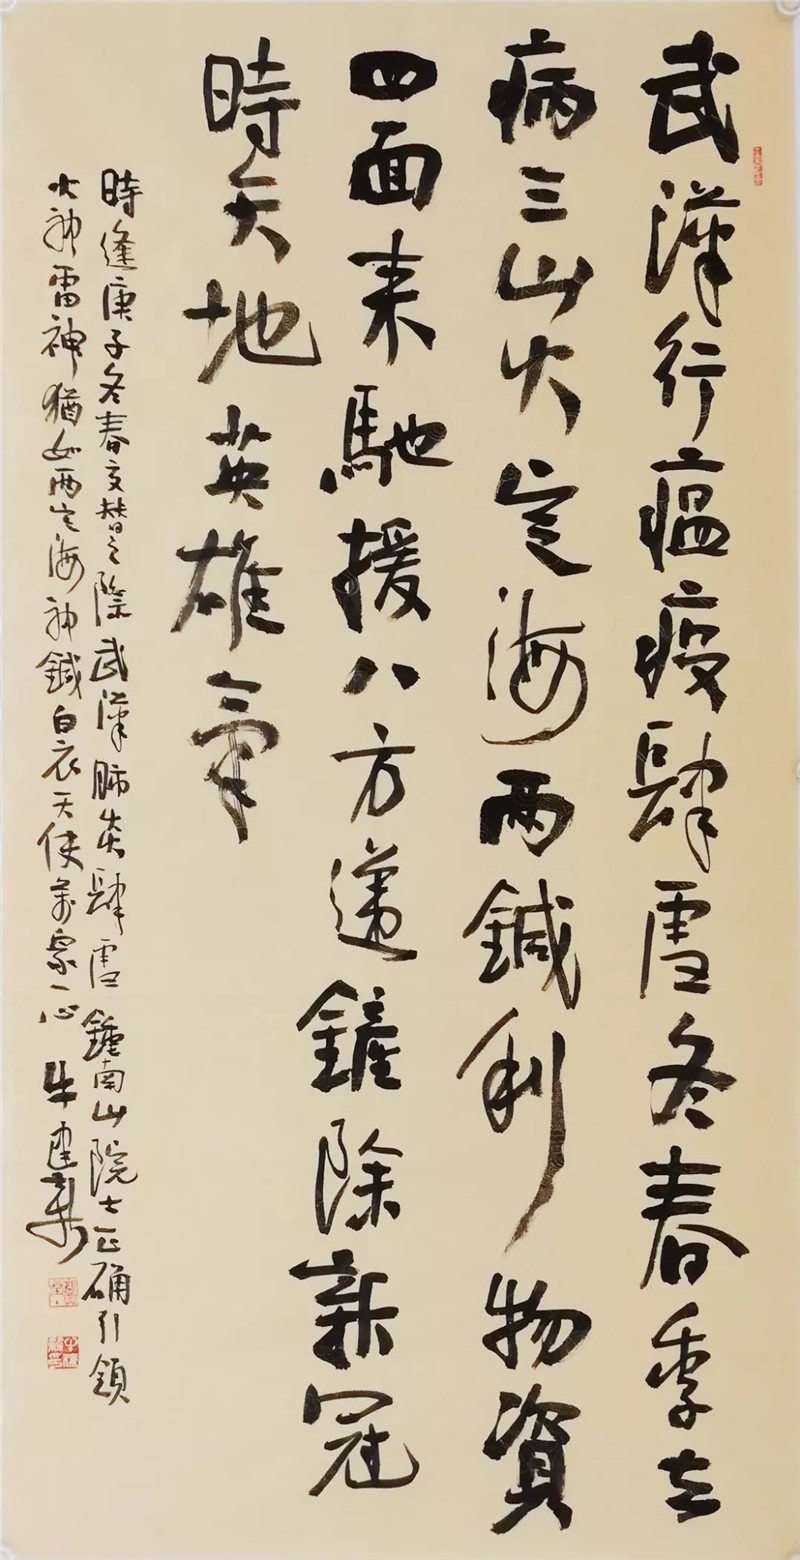 武漢行瘟疫肆虐冬春季去
病三山火定海兩鍼利物資
四面来馳援八方递鏟除新冠
時天地英雄氣
時逢庚子冬春交替之際武漢肺炎肆虐鍾南山院士正確引領
火神雷神猶如兩定海神鍼白衣天使萬眾一心 牛建